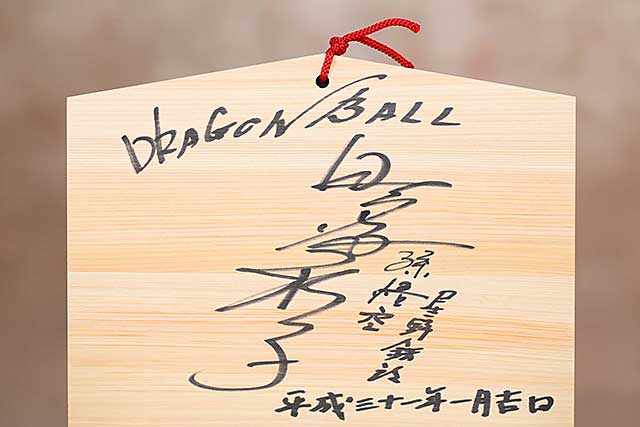 DRAGON BALL
野沢雅子
孫悟空
星野鉄郎
平成三十一年一月吉日